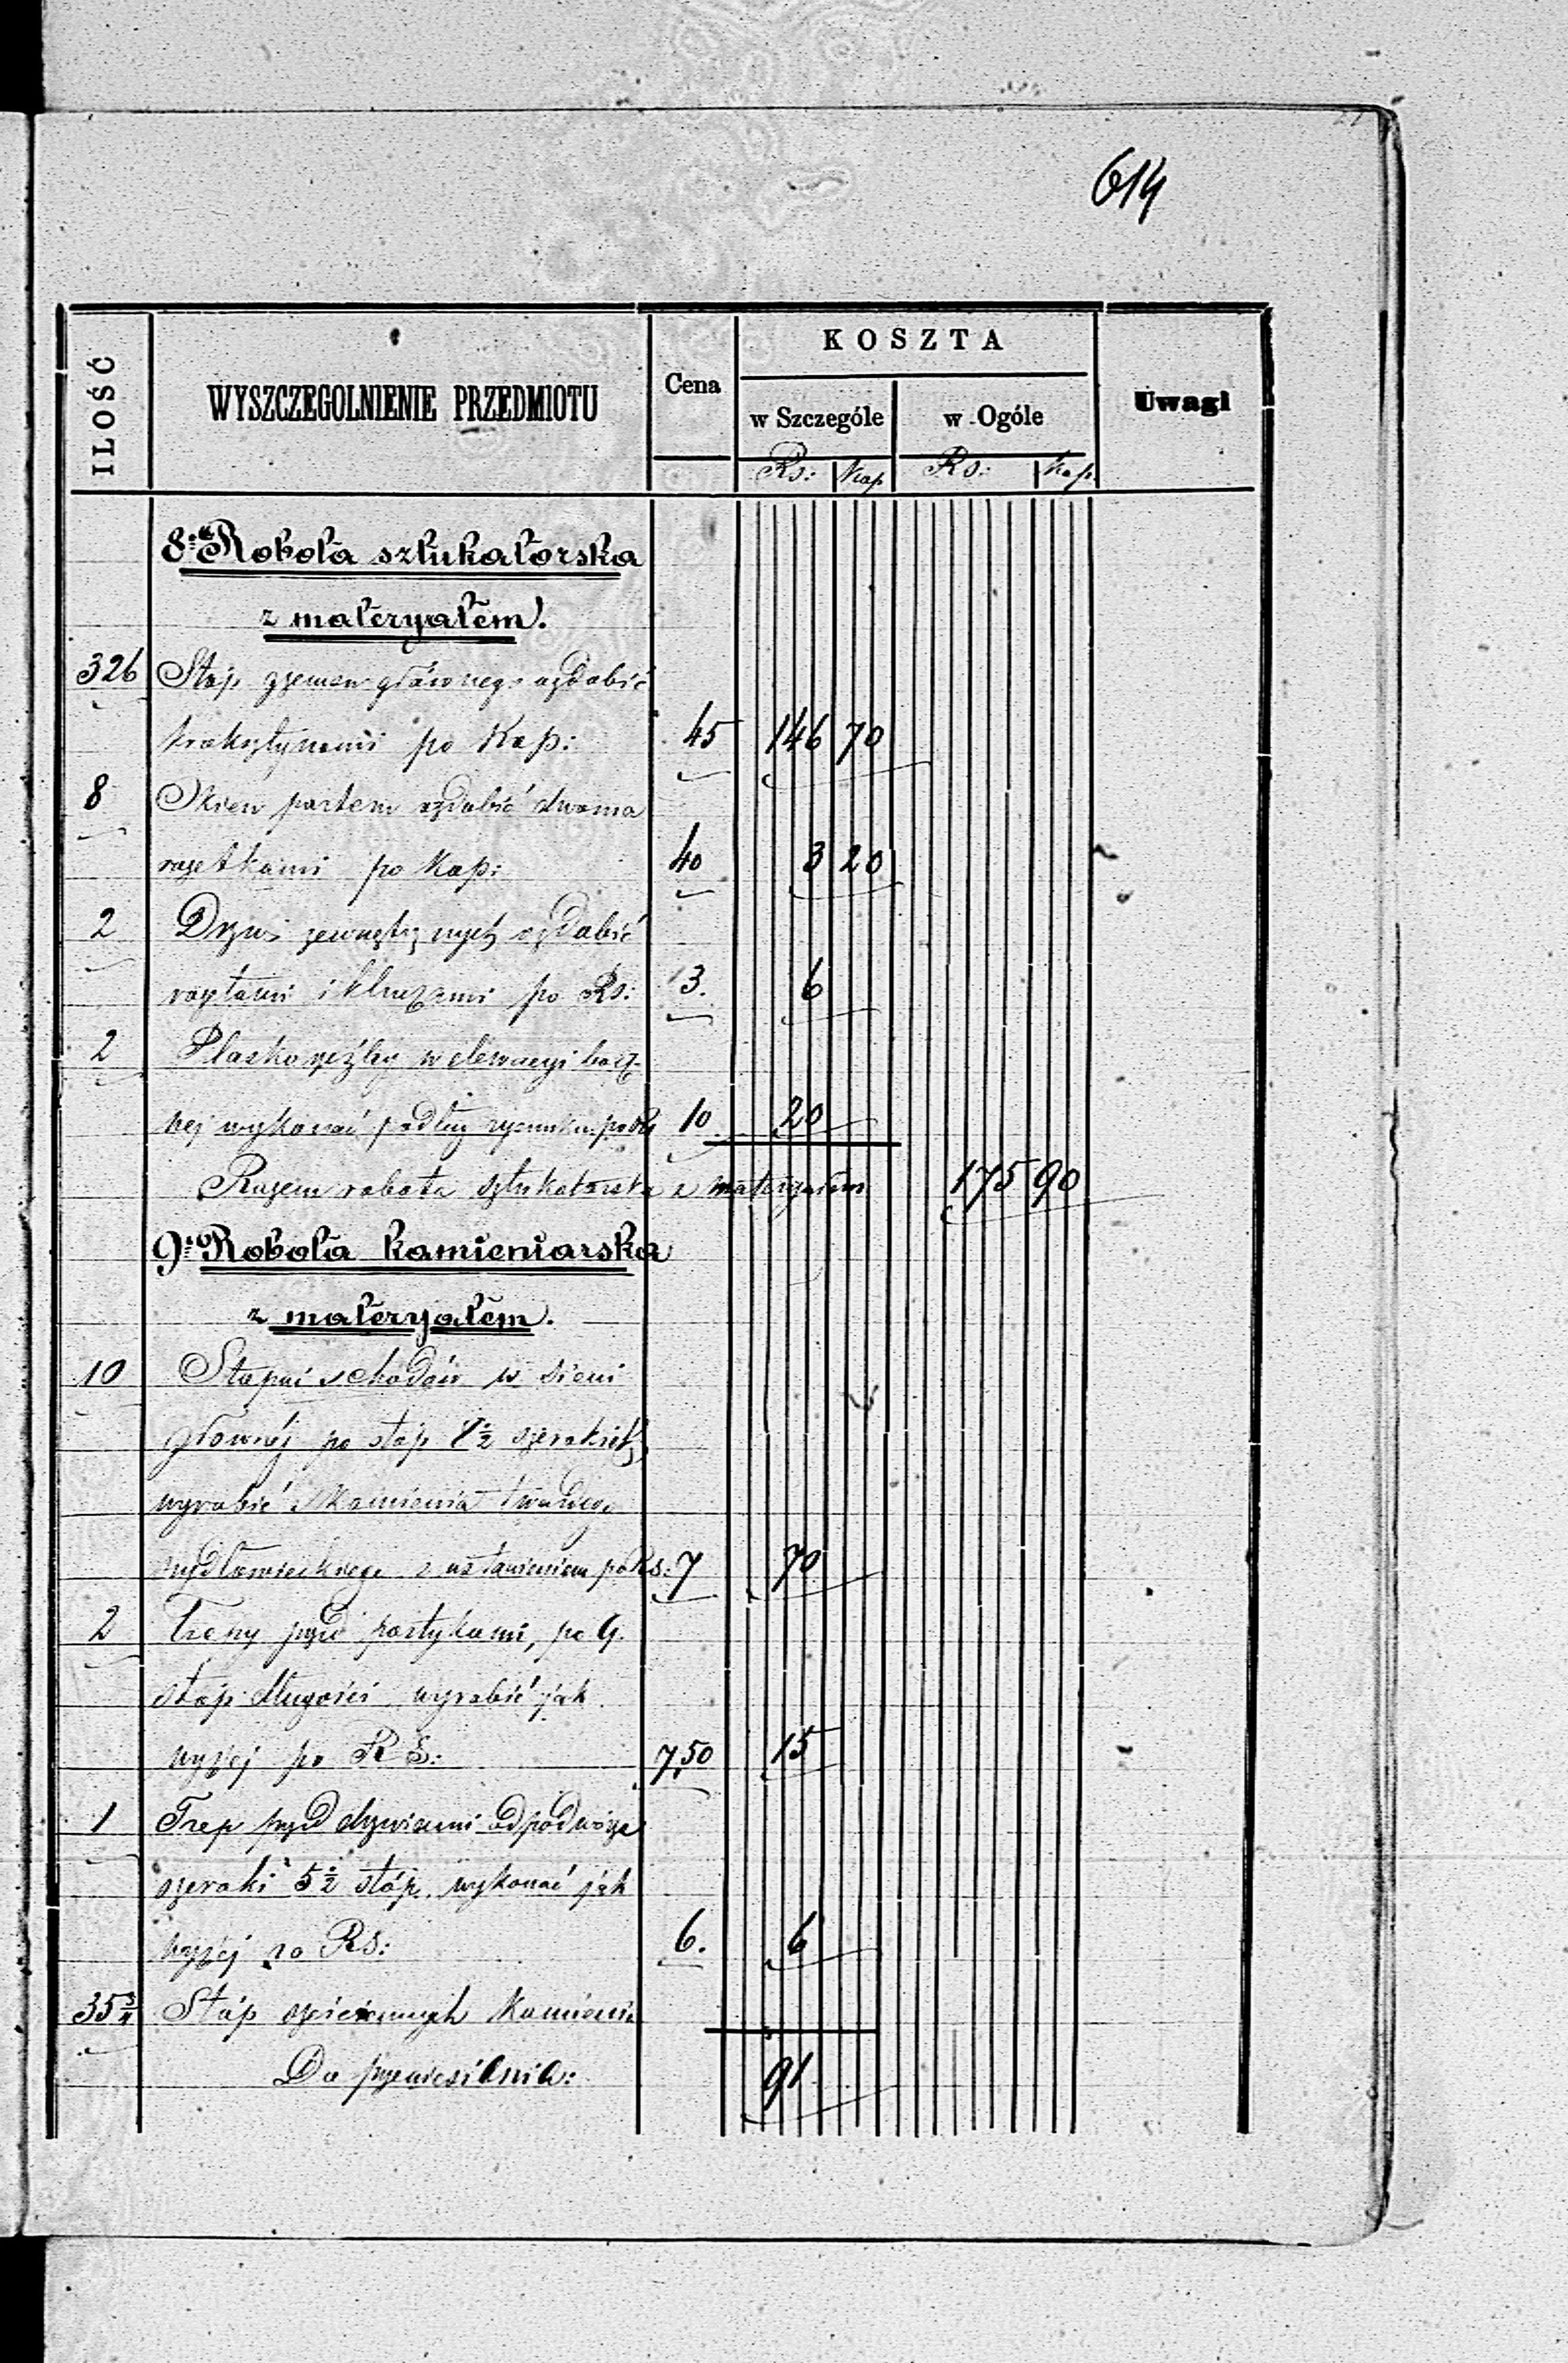 614
ILOŚĆ
WYSZCZEGOLNIENIE PRZEDMIOTU
Cena
KOSZTA
w Szczególe
w Ogóle
Uwagi
Rs: Kop Rs: Kop.
8. Robota sztukatorska
z materyałem.
326 Stóp gzemsu głównego ozdobić
po Kop: 45 146 70
8 Okien parteru ozdobić dwoma
rozetkami po Kop: 40 3 20
2 Drzwi zewnętrznych ozdobić
i kluczami po Rs: 3. 6
2 Płaskorzeźby w elewacyi bocz
nej wykonać podług rysunku po Rs 10 20
Razem robota sztukatorska z materyałem 175 90
9. Robota kamieniarska
z materyałem.
10 Stopni schodów w sieni
głównéj po stóp 8½ szerokich
wyrobić z Kamienia twardego
szydłowieckiego z ustawieniem po Rs: 7 70
2 Trepy przed portykami, po 9.
stóp długości wyrobić jak
wyżej po RS: 7,50 15
1 Trep przed drzwiami od podwórza
szeroki 5½ stóp. wykonać jak
wyżej za Rs: 6. 6
35¾ Stóp sześciennych Kamienia
Do przeniesienia: 91